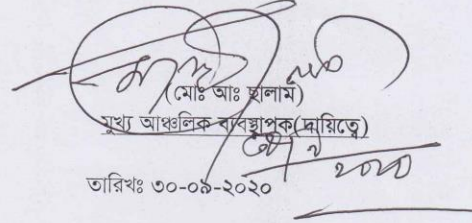 (মোঃ আঃ ছালাম)
মুখ্য আঞ্চলিক ব্যবস্থাপক(দায়িত্বে)
২০২০
তারিখঃ ৩০-০৯-২০২০